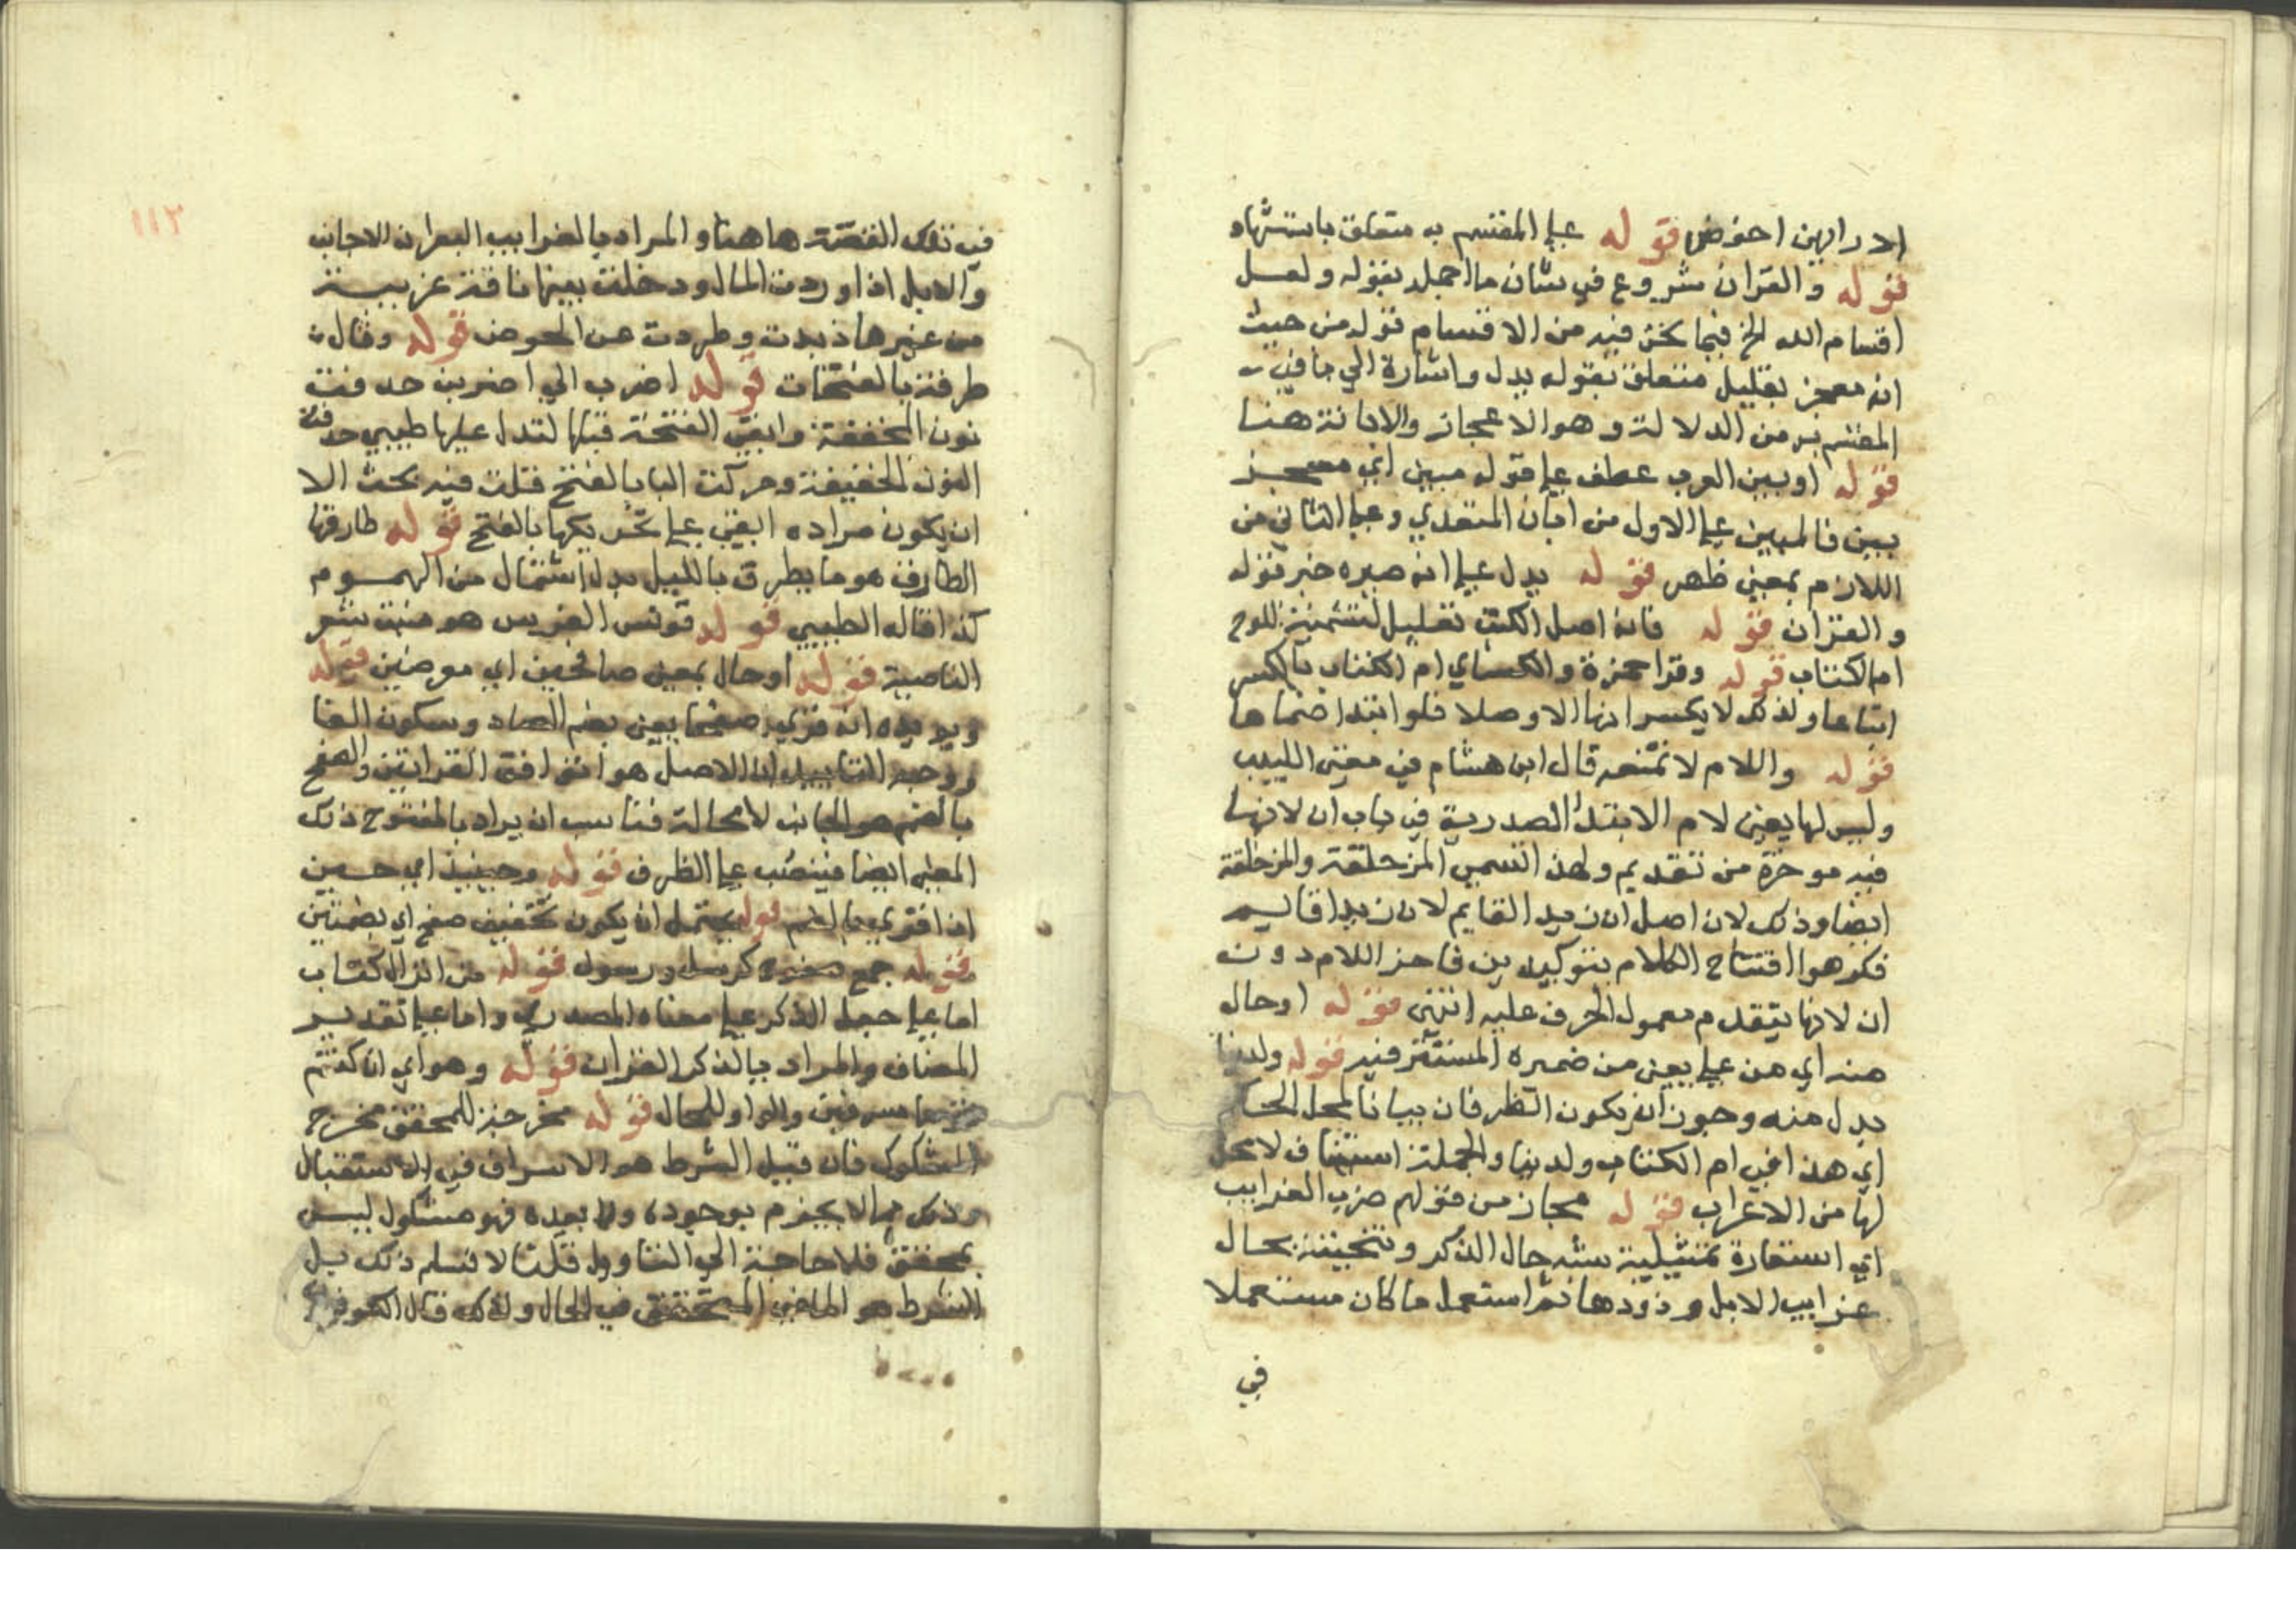 الادرايين احوض قوله على المقسم به متعلق باستشهاد
قوله والقران شروع في بيان ما اجمله بقوله ولعل
اقسام الله الخ فيما نحن فيه من الاقسام قوله من حيث
انه معجز بقليل متعلق بقوله يدل واشارة الي ما في
المقسم به من الدلالة وهو الاعجاز والابانة هنا
قوله او بين العرب عطف على قوله مبين اي معجز
بين فالمبين على الاول من ابان المتعدي وعلى الثاني من
اللازم بمعني ظهر قوله يدل على انه صيره خبر قوله
والقران قوله فانه اصل الكتب تعليل لتسمية اللوح
ام الكتاب قوله وقرا حمزة والكساي ام الكتاب بالكسر
اتباعا ولذلك لا يكسرانها الا وصلا فلو ابتدا ضماها
قوله واللام لا تمنعه قال ابن هشام في مغني اللبيب
وليس لها يعني لام الابتدا الصدرية في باب ان لانها
فيه موخرة من تقديم ولهذا تسمي المزحلقة والمزحلفة
ايضا وذلك لان اصل ان زيدا لقايم لان زيدا قايم
فكرهوا افتتاح الكلام بتوكيدين فاخر اللام دون
ان لانها يتقدم معمول الحرف عليه انتهي قوله او حال
منه اي من علي يعني من ضميره المستتر فيه قوله ولدينا
بدل منه وجوز ان يكون الظرفان بيانا لمحل الحكم
اي هذا في ام الكتاب ولدينا والجملة استيناف لا محل
لها من الاعراب قوله مجاز من قولهم ضرب الغرايب
اي استعارة تمثيلية شبه حال الذكر وتنحيته بحال
غرايب الابل وذودها ثم استعمل ما كان مستعملا
في
١١٢
في تلك القصة هاهنا والمراد بالغرايب البعران الاجانب
والابل اذا وردت المال ودخلت بينها ناقة غريبة
من غيرها ذيدت وطردت عن الحوض قوله وقال
طرفة بالفتحات قوله اضرب الي اضربن حدفت
نون المخففة وابقي الفتحة قبلها لتدل عليها طيبي حدفت
النون الخفيفة وحركت البا بالفتح قلت فيه بحث الا
ان يكون مراده ابقي على تحريكها بالفتح قوله طارقها
الطارق هو ما يطرق بالليل بدل اشتمال من الهموم
كذا قاله الطيبي قوله قونس الفرس هو منبت شعر
الناصية قوله او حال بمعني صافحين اي معرضين قوله
ويويده انه قري صفحا يعني بضم الصاد وسكون الفا
ووجه التاييد ان الاصل هو توافق القراتين والصفح
بالضم هو الجانب لا محالة فناسب ان يراد بالمفتوح ذلك
المعني ايضا فينصب على الظرف قوله وحينيذ اي حين
اذا قري بالضم قوله يحتمل ان يكون تخفيف صفح اي بضمتين
قوله جمع صفوح كرسل ورسول قوله من انزال كتاب
اما على جعل الذكر على معناه المصدري واما على تقدير
المضاف والمراد بالذكر القران قوله وهو اي ان كنتم
قوما مسرفين والواو للحال قوله مخرجة للمحقق مخرج
المشكوك فان قيل الشرط هو الاسراف في الاستقبال
وذلك مما لا يجزم بوجوده ولا بعدمه فهو مشكوك ليس
بمحقق فلا حاجة الي التاويل قلت لا نسلم ذلك بل
الشرط هو الماضي المتحقق في الحال ولذلك قال الكوفي